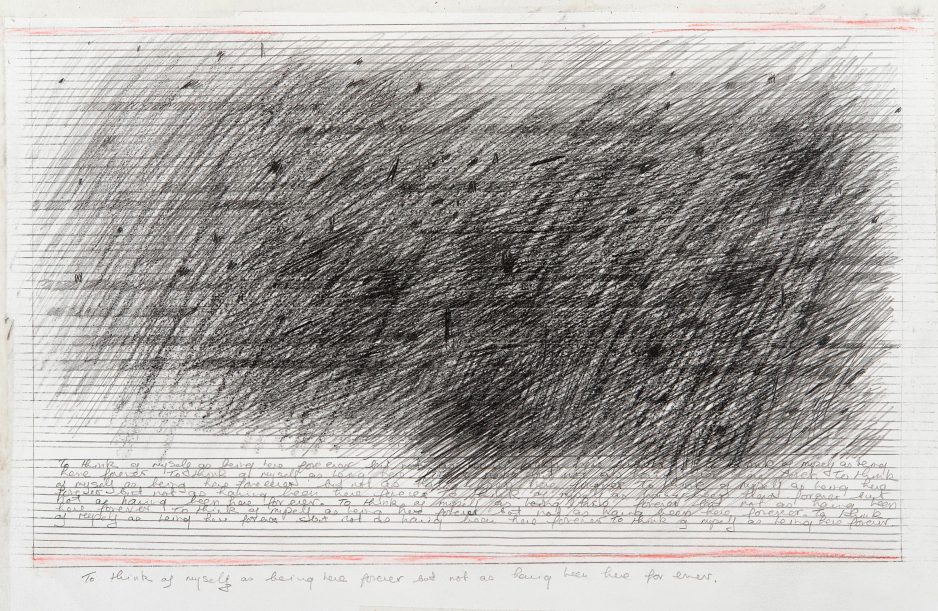 To think of myself as being here forever but not as being
here forever To think of myself as being To think
of myself as being here forever but not as having been here forever To think of myself as being here
forever but not as having been here forever To think of myself as being here forever but
not as having been here for ever To think of myself as being here forever but not as having been
here forever To think of myself as being here forever but not as having been here forever To think
of myself as being here forever but not as having been here forever To think of myself as being here forever
To think of myself as being here forever but not as having been here for ever.